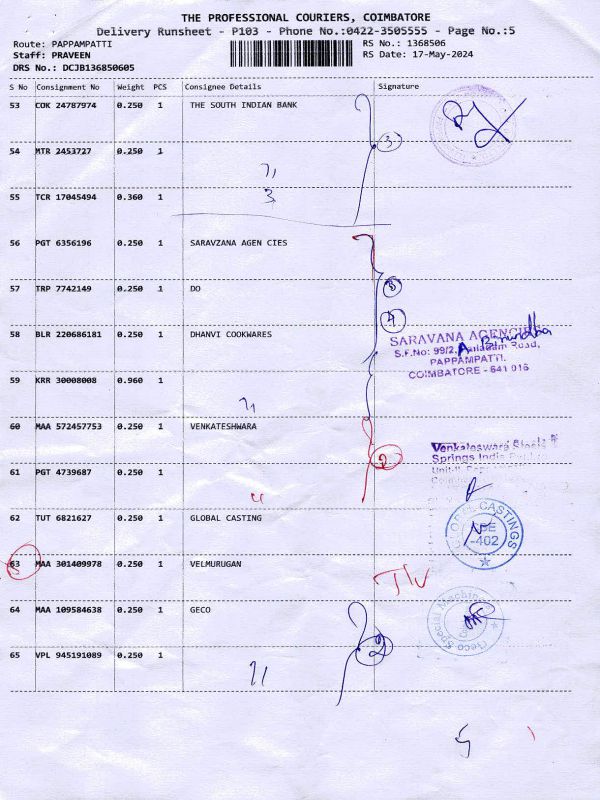 THE PROFESSIONAL COURIERS, COIMBATORE
Delivery Runsheet - P103 - Phone No.:0422-3505555 - Page No.:5
Route: PAPPAMPATTI RS No.: 1368506
Staff: PRAVEEN RS Date: 17-May-2024
DRS No.: DCJB136850605
S No Consignment No Weight PCS Consignee Details Signature
53 COK 24787974 0.250 1 THE SOUTH INDIAN BANK
3
54 MTR 2453727 0.250 1
55 TCR 17045494 0.360 1 3
56 PGT 6356196 0.250 1 SARAVZANA AGEN CIES
57 TRP 7742149 0.250 1 DO
4
58 BLR 220686181 0.250 1 DHANVI COOKWARES
SARAVANA AGENCIES
S.F.No: 99/2, Road,
PAPPAMPATTI.
COIMBATORE - 641 016
59 KRR 30008008 0.960 1
60 MAA 572457753 0.250 1 VENKATESHWARA
Venkateswara Steels &
Springs India
2
61 PGT 4739687 0.250 1
62 TUT 6821627 0.250 1 GLOBAL CASTING
GLOBAL CASTINGS
-402
63 MAA 301409978 0.250 1 VELMURUGAN
64 MAA 109584638 0.250 1 GECO
Geco Special Machine
2
65 VPL 945191089 0.250 1 11